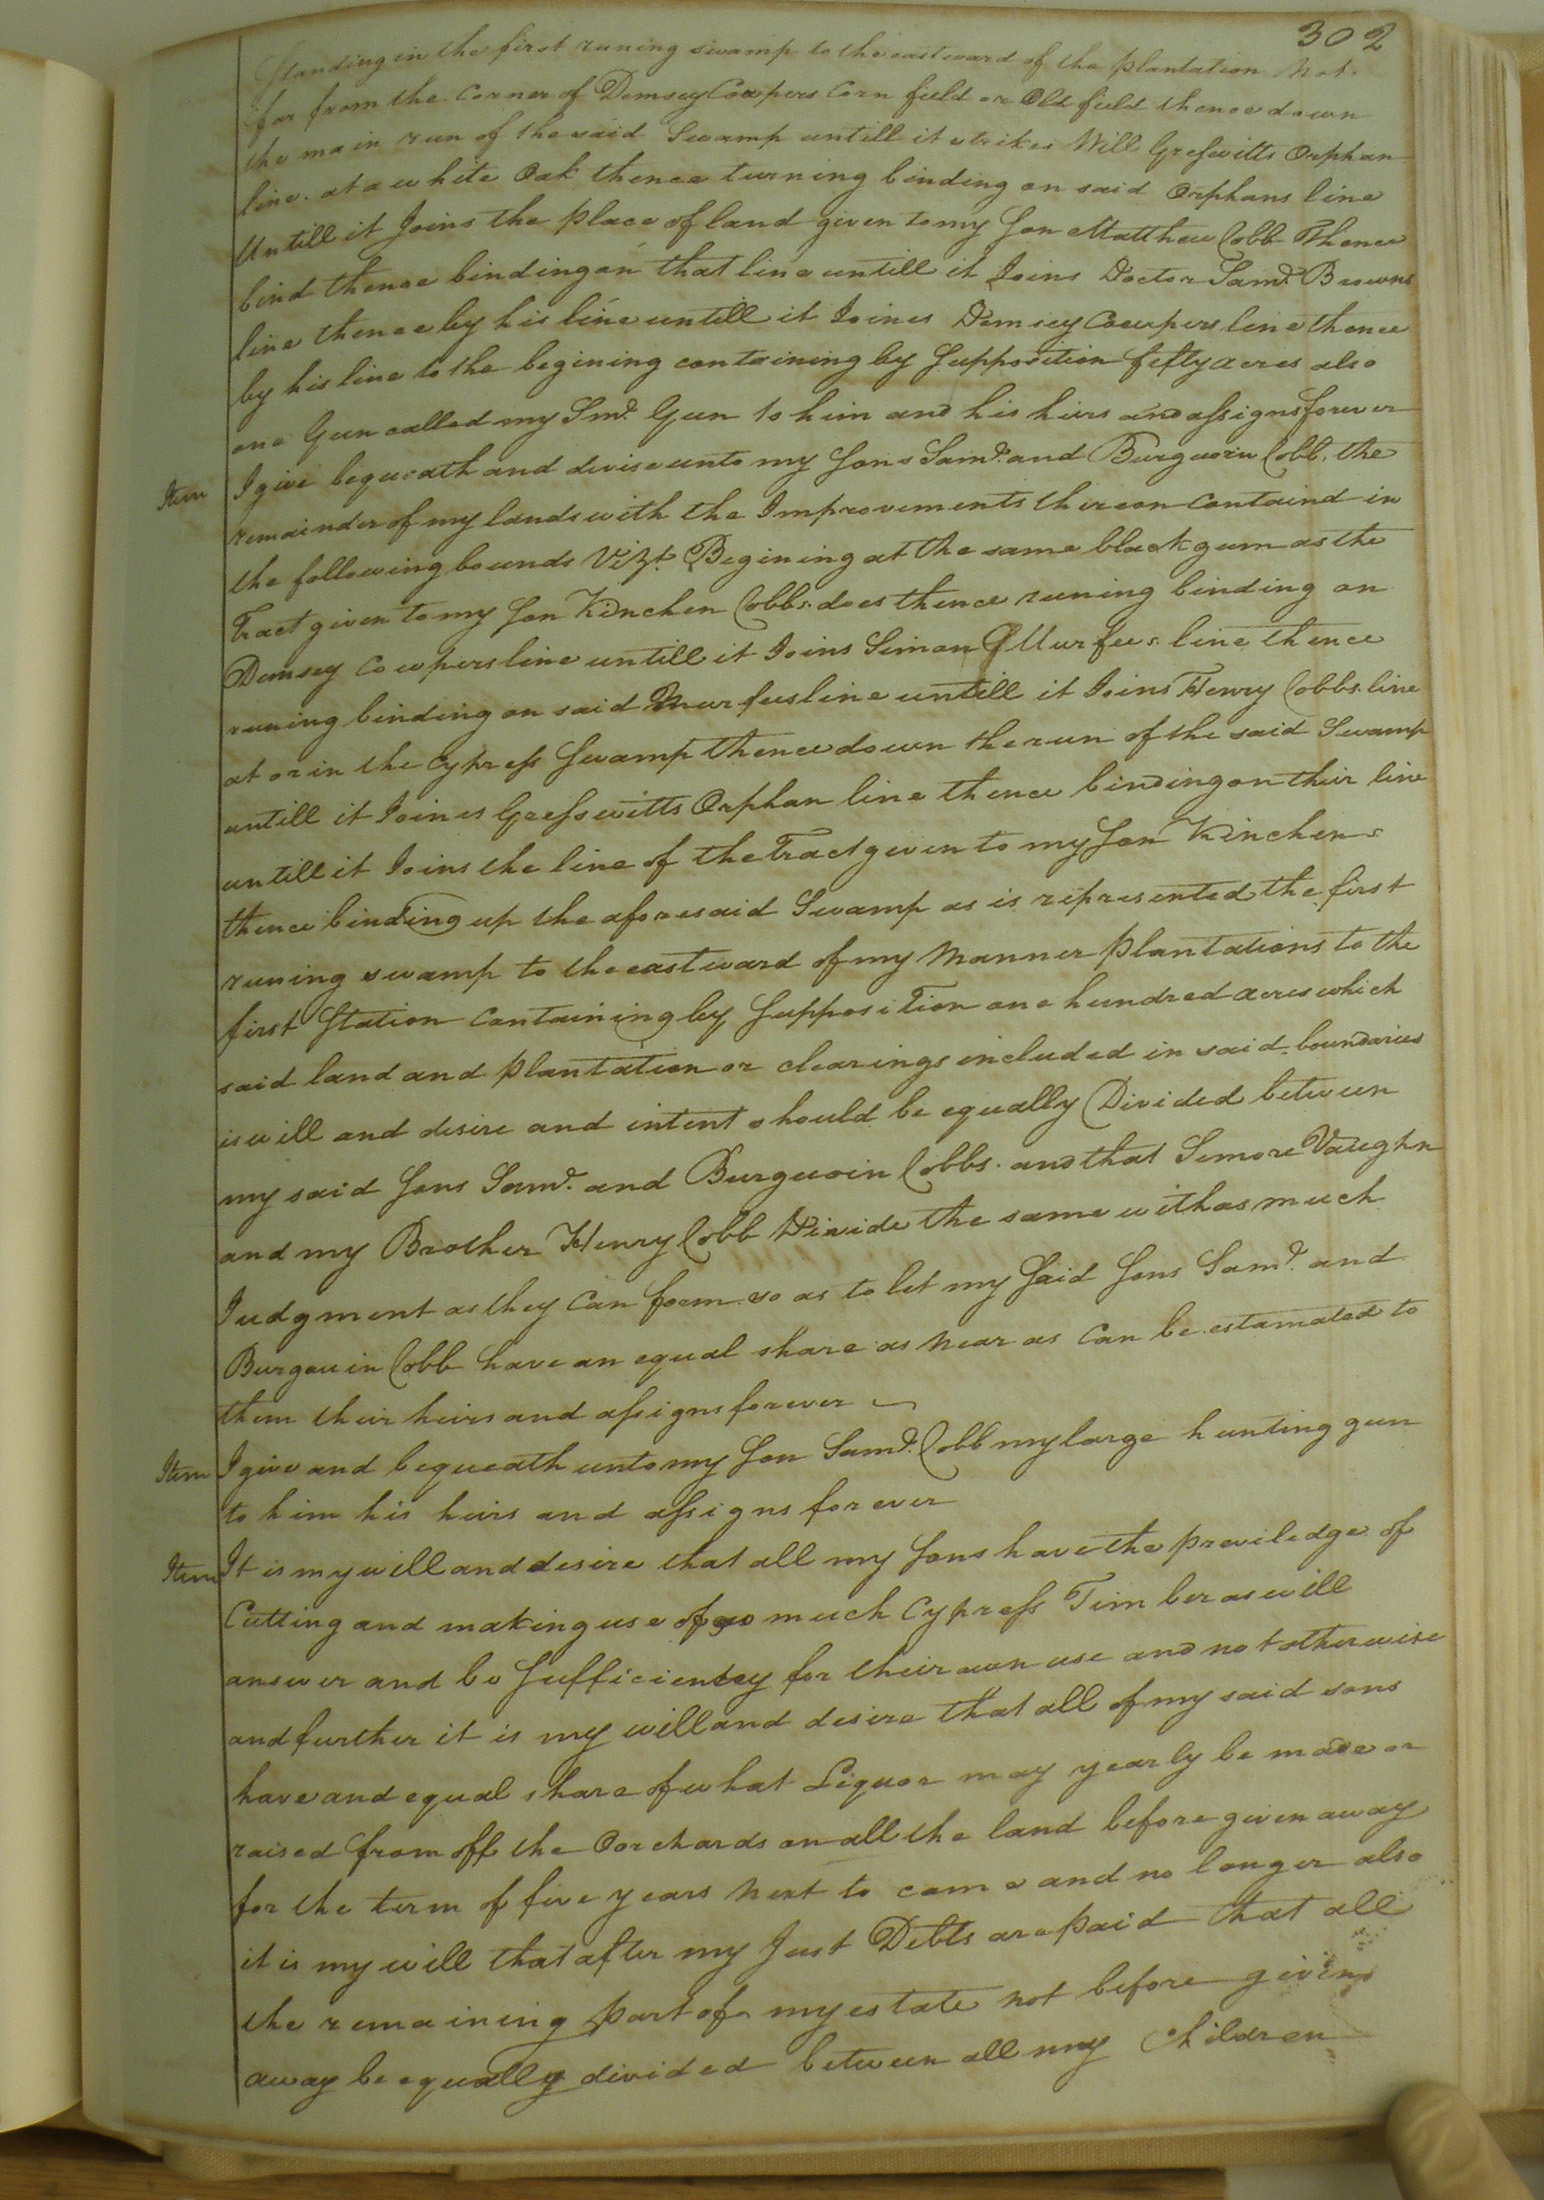 302
Standing in the first runing swamp to the eastward of the plantation Not
far from the Corner of Demsey Cowpers Corn field or Old field thence down
the main run of the said Swamp untill it strikes Will Greswitts Orphan
line at a white Oak thence turning binding on said Orphans line
Untill it Joins the place of land given to my Son Matthew Cobb Thence
bind thence binding on that line untill it Joins Doctor Saml. Browns
line thence by his line untill it Joines Demsey Cowpers line thence
by his line to the begining containing by Supposition fifty acres also
one Gun called my Sml. Gun to him and his hirs and assigns forever
Item I give bequeath and devise unto my Sons Saml. and Burguoin Cobb, the
remainder of my lands with the Improvements thereon Containd in
the following bounds Vizt. Begining at the same black gum as the
Tract given to my Son Kinchen Cobbs does thence runing binding on
Demsey Cowpers line untill it Joins Simon Murfees line thence
runing binding on said Murfees line untill it Joins Henry Cobbs line
at or in the Cypress Swamp thence down the run of the said Swamp
untill it Joines Gresswitts Orphan line thence binding on their line
untill it Joins the line of the Tract given to my Son Kinchen
thence binding up the aforesaid Swamp as is represented the first
runing swamp to the eastward of my Manner Plantations to the
first Station Containing by Supposition one hundred acres which
said land and plantation or clearings included in said boundaries
is will and desire and intent should be equally Divided between
my said Sons Saml. and Burguoin Cobbs. and that Simore Vaughn
and my Brother Henry Cobb Divide the same with as much
Judgment as they Can form so as to let my Said Sons Saml. and
Burgouin Cobb have an equal share as near as Can be estamated to
them their heirs and assigns forever
Item I give and bequeath unto my Son Saml. Cobb my large hunting gun
to him his heirs and assigns forever
Item It is my will and desire that all my Sons have the previledge of
Cutting and making use of so much Cypress Timber as will
answer and be Sufficientcy for their own use and not otherwise
and further it is my will and desire that all of my said sons
have and equal share of what Liquor may yearly be made or
raised from off the Oorchards on all the land before given away
for the term of five years next to come and no longer also
it is my will that after my Just Debts are paid that all
the remaining part of my estate not before given
away be equally divided between all my Children